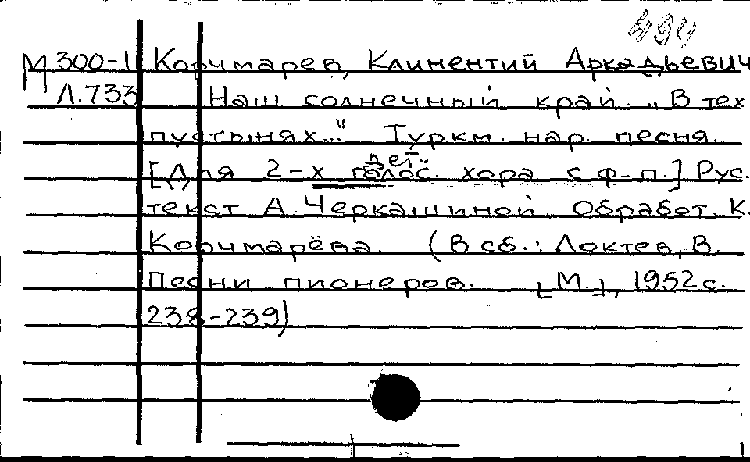 490
М 300-1 Корчмарев, Климентий Аркадьевич
Л.733 Наш солнечный край. „В тех
пустынях..." Туркм. нар. песня.
[Для 2-х голос. дет. хора с ф-п.] Рус.
текст А. Черкашиной. Обработ. К.
Корчмарёва. (В сб.: Локтев, В.
Песни пионеров. [М.], 1952 с.
238-239)